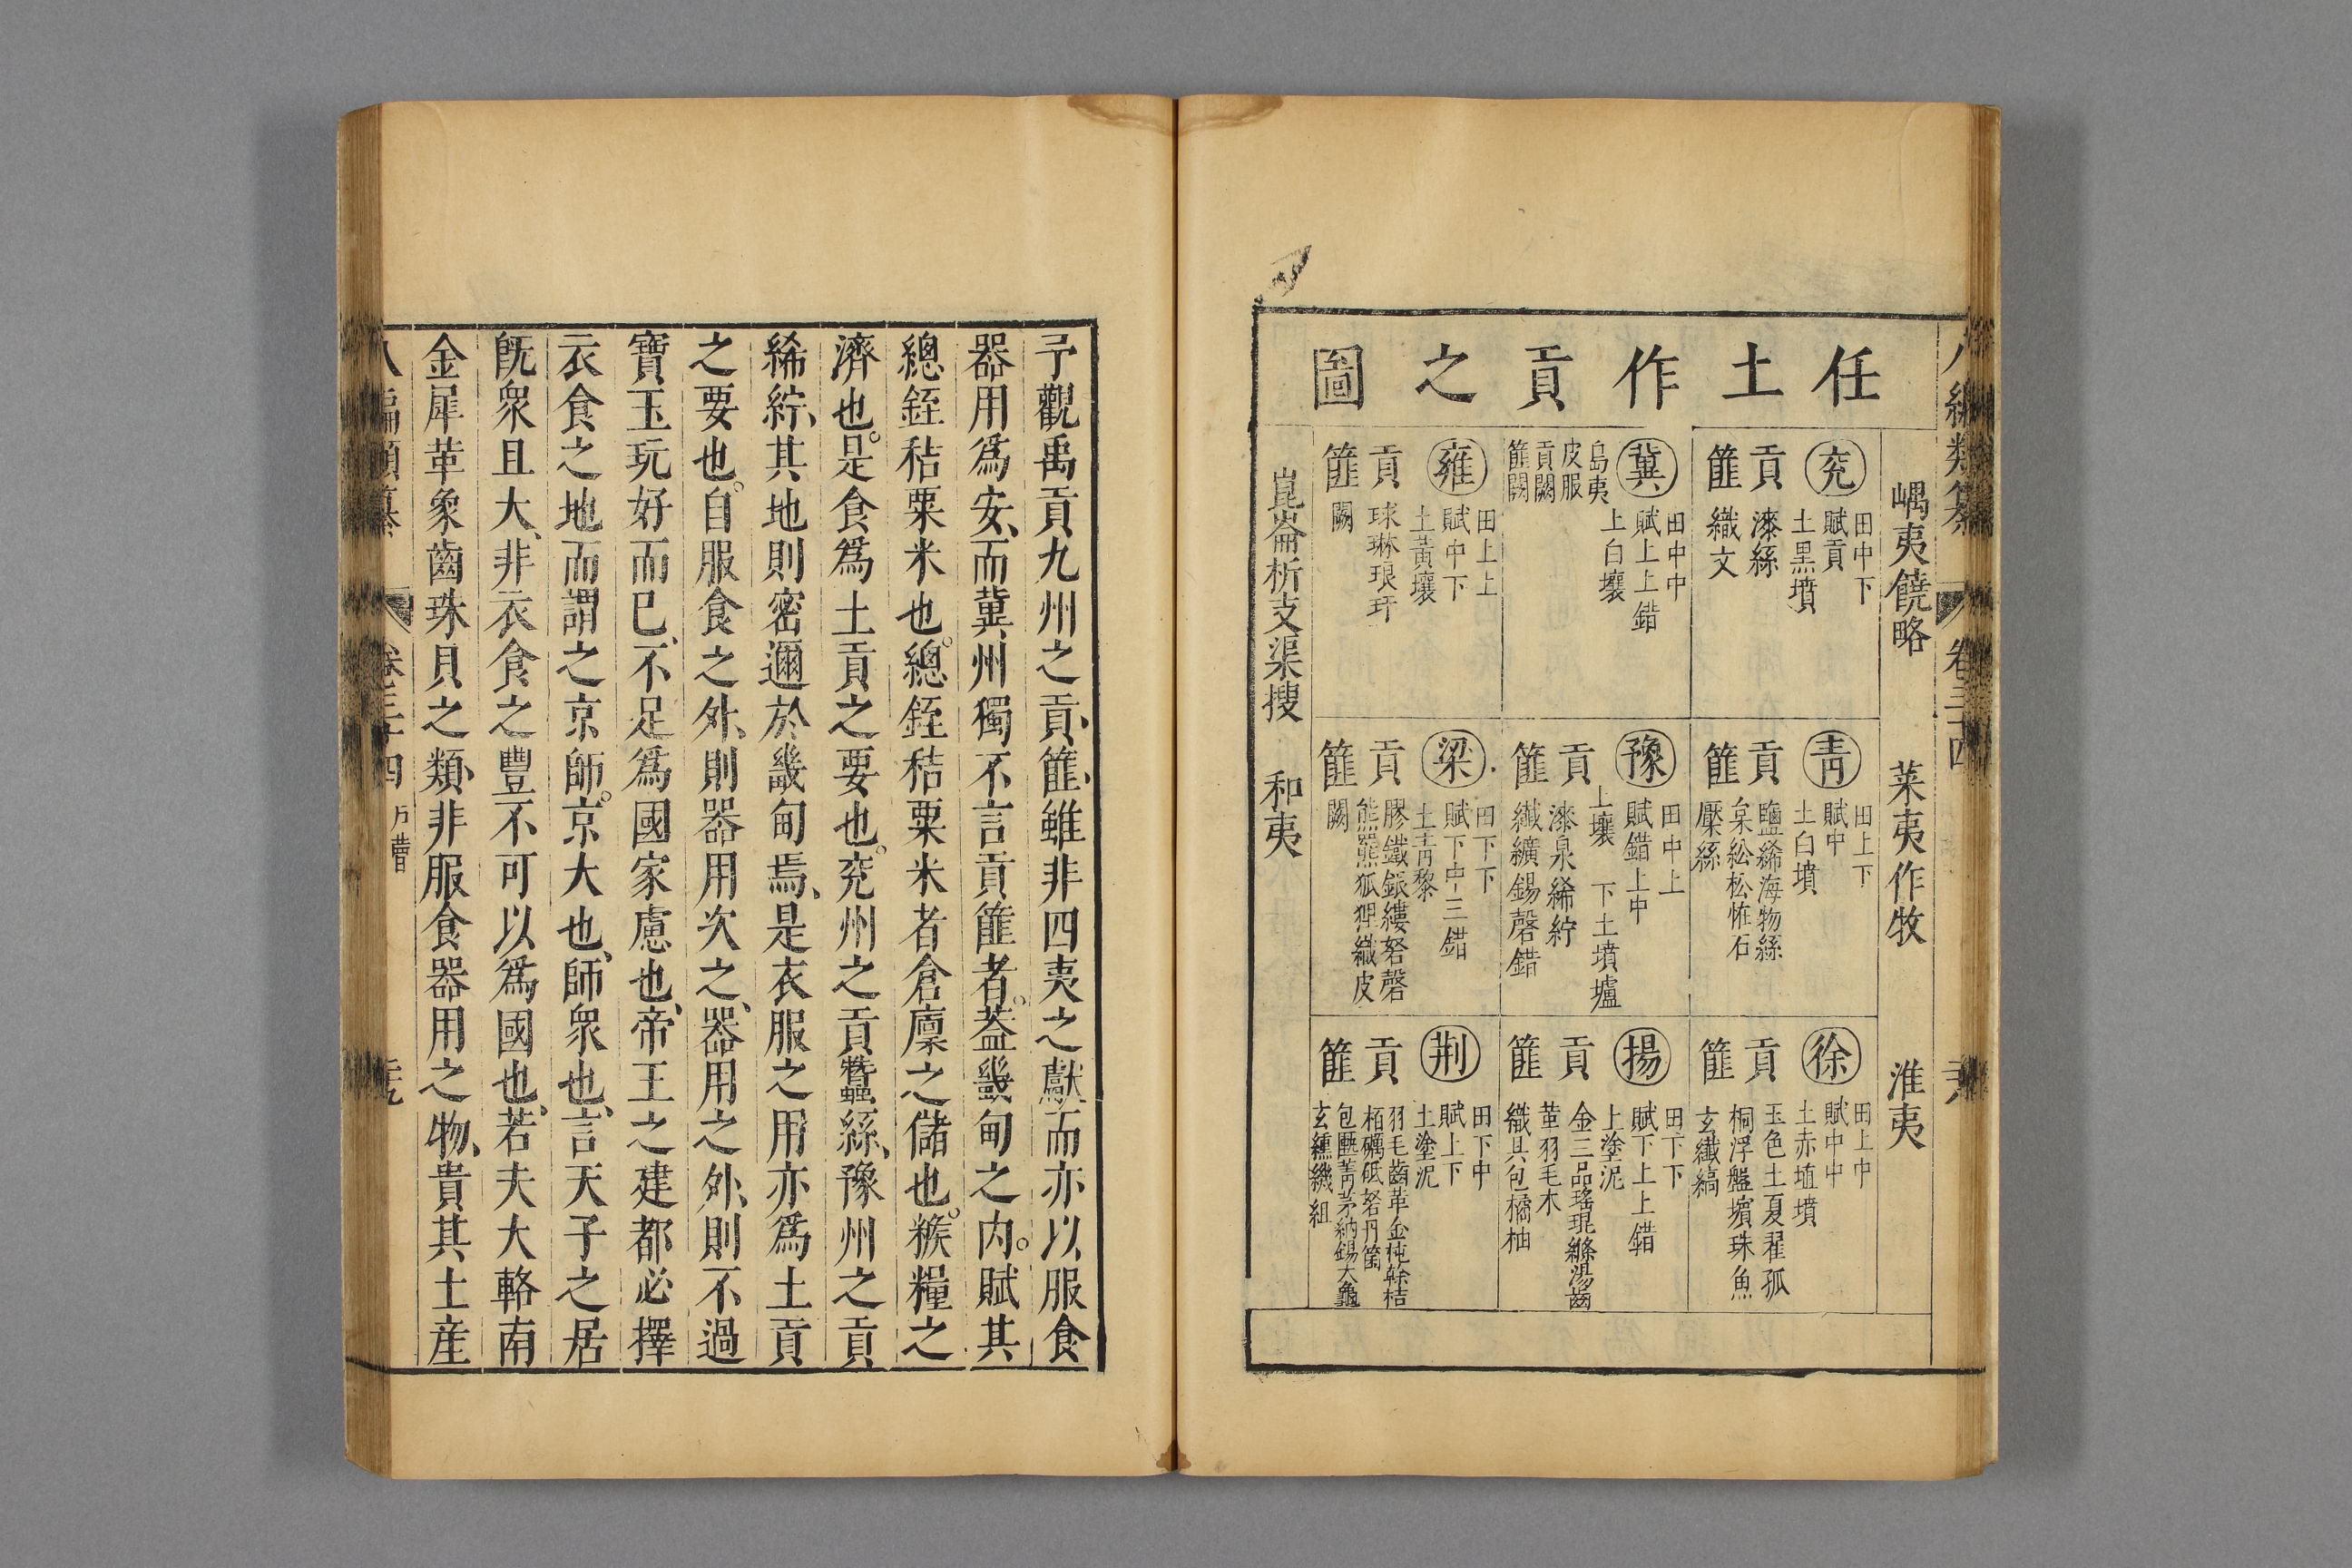 任土作貢之圖
嵎夷饒略　萊夷作牧　淮夷
兗
田中下
賦貢
土黒墳
貢　漆絲
篚　織文
青
田上下
賦中
土白墳
貢　鹽絺海物絲
枲鈆松恠石
篚　檿絲
徐
田上中
賦中中
土赤埴墳
貢　玉色土夏翟孤
桐浮盤璸珠魚
篚　玄纖縞
冀
田中中
賦上上錯
上白壤
島夷
皮服
貢闕
篚闕
豫
田中上
賦錯上中
上壤　下土墳壚
貢　漆泉絺紵
篚　纖纊錫磬錯
揚
田下下
賦下上上錯
上塗泥
貢　金三品瑤琨篠湯齒
革羽毛木
篚　織具包橘柚
雍
田上上
賦中下
土黃壤
貢　球琳琅玕
篚　闕
梁
田下下
賦下中三錯
土青黎
貢　膠鐵銀縷砮磬
熊羆狐狸織皮
篚　闕
荆
田下中
賦上下
土塗泥
貢　羽毛齒革金杶榦栝
栢礪砥砮丹箘
包匭菁茅納錫大龜
篚　玄纁璣組
崑崙析支渠搜　和夷
予觀禹貢九州之貢、篚、雖非四夷之獻而亦以服食
器用爲安、而冀州獨不言貢篚者。葢畿甸之内。賦其
總銍秸粟米也。總銍秸粟米者倉廩之儲也。糇糧之
濟也。是食爲土貢之要也。兖州之貢蠶絲、豫州之貢
絺紵、其地則密邇於畿甸焉、是衣服之用亦爲土貢
之要也。自服食之外、則器用次之、器用之外、則不過
寶玉玩好而已、不足爲國家慮也、帝王之建都必擇
衣食之地而謂之京師。京大也、師衆也、言天子之居
旣衆且大、非衣食之豐不可以爲國也、若夫大輅南
金犀革象齒珠貝之類、非服食器用之物、貴其土産
八編類纂　卷三十四　戶曹